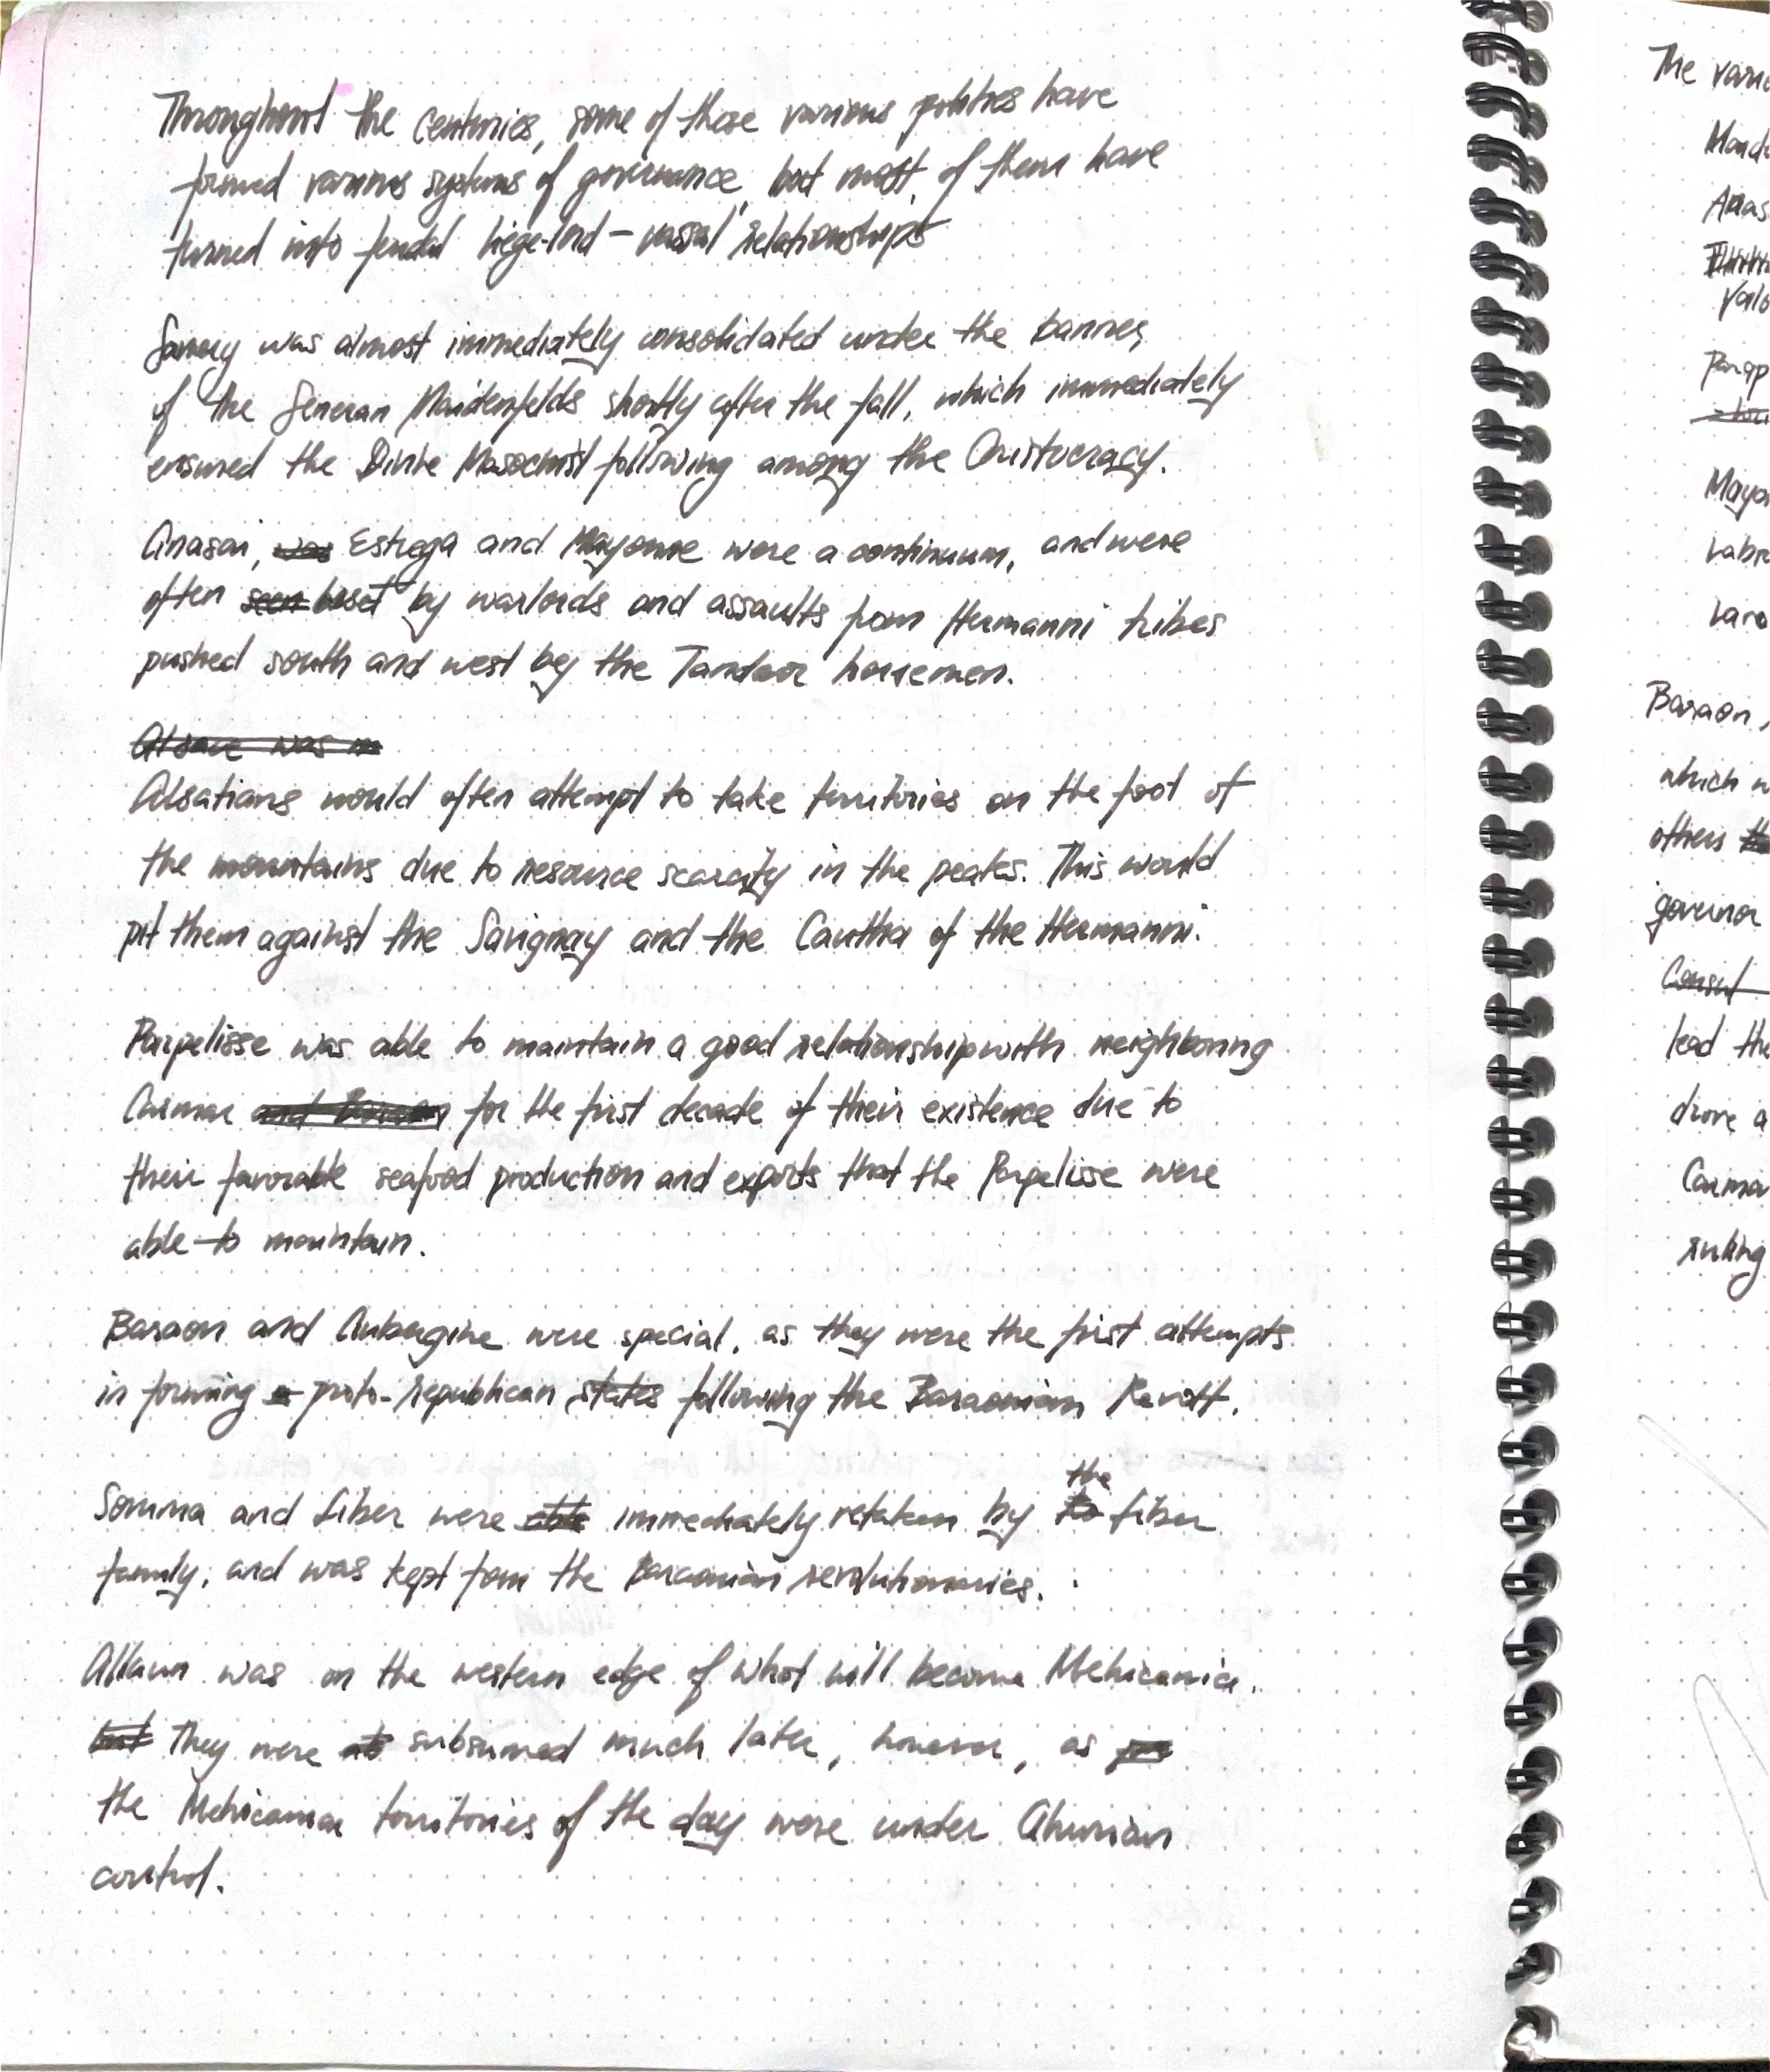 Throughout the centuries, some of these various polities have
formed various systems of governance, but most of them have
turned into feudal liege-lord – vassal relationships
was almost immediately consolidated under the banner
of the Seneran Maidenfelds shortly after the fall, which immediately
ensured the Divine Masochist following among the Aristocracy.
Anasai, was Estrega and Mayonne were a continuum, and were
often seen beset by warlords and assaults from Hermanni tribes
pushed south and west by the Tandoor horsemen.
Alsace was in
Alsatians would often attempt to take territories on the foot of
the mountains due to resource scarcity in the peaks. This would
pit them against the Savignay and the Cautha of the Hermanni.
Parpelisse was able to maintain a good relationship with neighboring
Carmar and for the first decade of their existence due to
their favorable seafood production and exports that the Parpelisse were
able to maintain.
Baraon and Aubergine were special, as they were the first attempts
in forming a proto-republican states following the Baraonian Revolt.
the
Somma and Liber were able immediately retaken by Liber
family, and was kept fom the Baraonian revolutionaries.
Allaun was on the western edge of what will become Mehicania.
but They were subsumed much later, however, as
the Mehicaniar territories of the day were under Ahurian
control.
The
Baraon,
which w
others
governor
Consul
lead the
drove a
Carmar
ruling